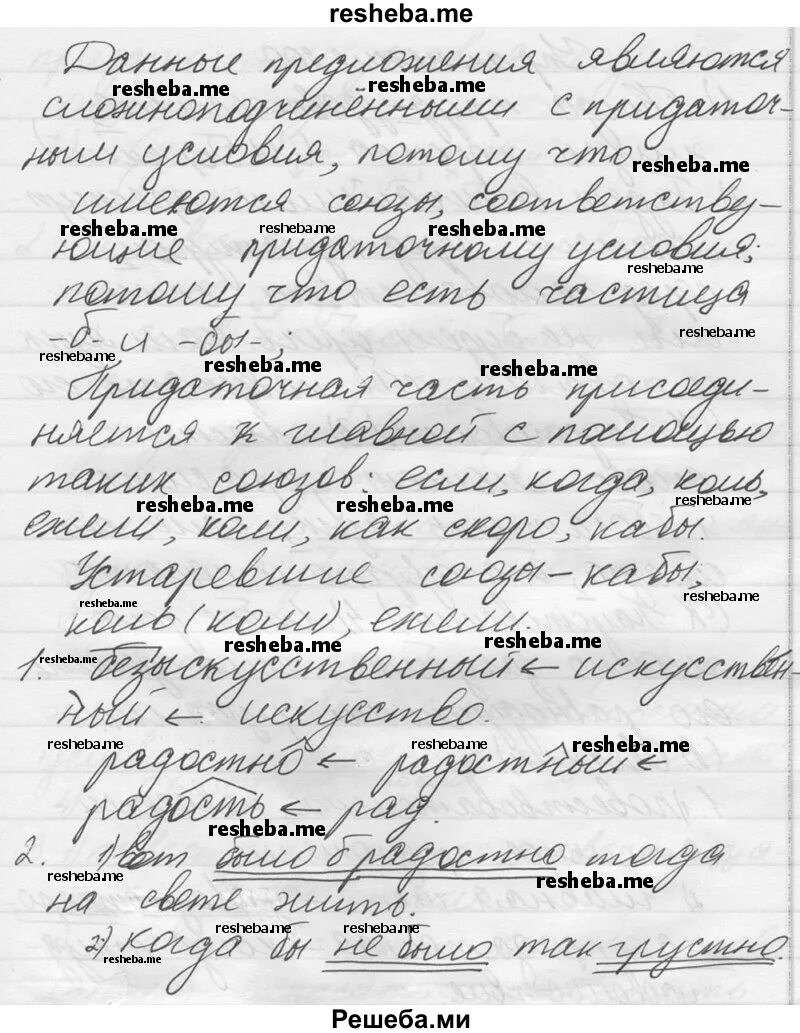 resheba.me
Данные предложения являются
resheba.me resheba.me
сложноподчинёнными с придаточ-
ным условия, потому что
resheba.me
имеются союзы, соответству-
resheba.me resheba.me resheba.me
ющие придаточному условия;
resheba.me
потому что есть частица
resheba.me
-б- и -бы-;
resheba.me resheba.me resheba.me
Придаточная часть присоеди-
няется к главной с помощью
таких союзов: если, когда, коль,
resheba.me resheba.me resheba.me
ежели, коли, как скоро, кабы.
Устаревшие союзы - кабы,
resheba.me resheba.me
коль (коли), ежели.
resheba.me resheba.me resheba.me
1. безыскусственный ← искусствен-
ный ← искусство.
resheba.me resheba.me resheba.me
радостно ← радостный ←
радость ← рад.
resheba.me
2. 1) вот было б радостно тогда
resheba.me resheba.me
на свете жить.
resheba.me resheba.me
2) Когда бы не было так грустно.
resheba.me
Решеба.ми